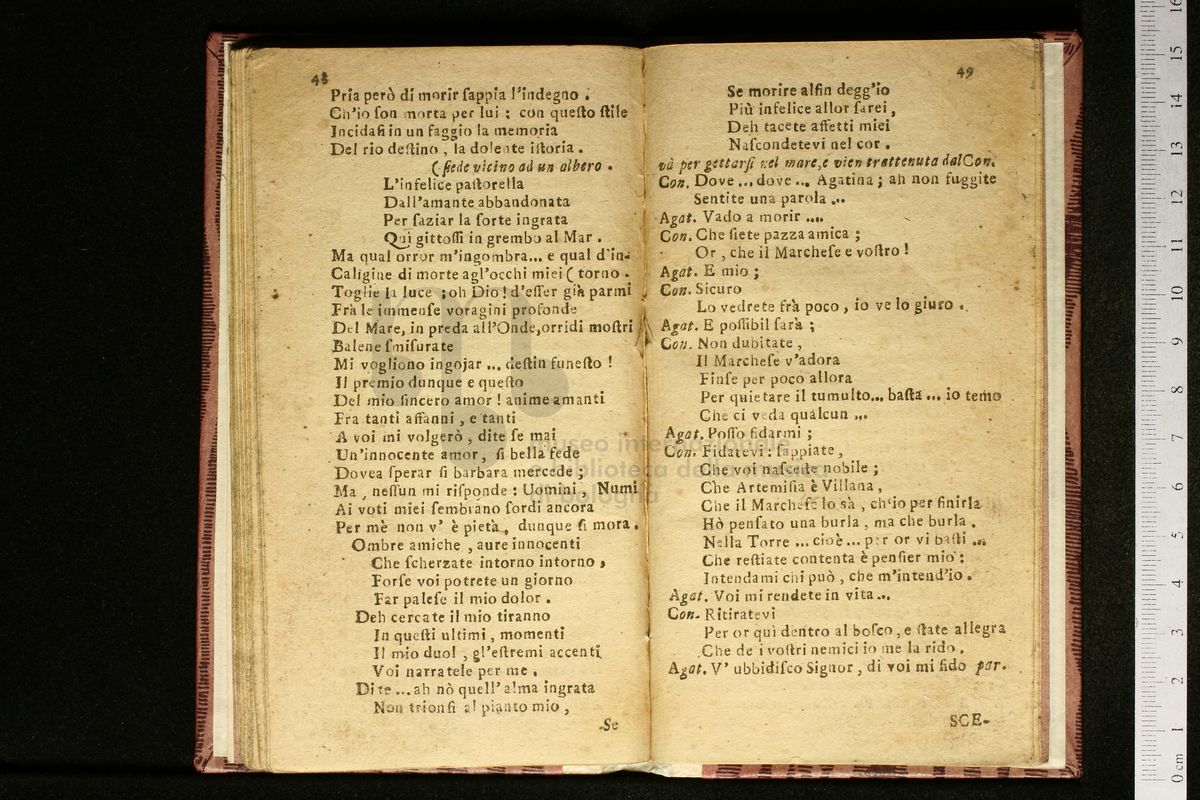 48
Pria però di morir ſappia l'indegno.
Ch'io ſon morta per lui; con queſto ſtile
Incidaſi in un faggio la memoria
Del rio deſtino, la dolente iſtoria.
(ſiede vicino ad un albero.
L'infelice paſtorella
Dall'amante abbandonata
Per ſaziar la ſorte ingrata
Quì gittoſſi in grembo al Mar.
Ma qual orror m'ingombra... e qual d'in-
Caligine di morte agl'occhi miei (torno.
Toglie la luce; oh Dio! d'eſſer già parmi
Frà le immenſe voragini profonde
Del Mare, in preda all'Onde, orridi moſtri
Balene ſmiſurate
Mi vogliono ingojar ... deſtin funeſto!
Il premio dunque e queſto
Del mio ſincero amor! anime amanti
Fra tanti affanni, e tanti
A voi mi volgerò, dite ſe mai
Un'innocente amor, ſi bella fede
Dovea ſperar ſi barbara mercede;
Ma, neſſun mi riſponde: Uomini, Numi
Ai voti miei ſembrano ſordi ancora
Per mè non v' è pietà, dunque ſi mora.
Ombre amiche, aure innocenti
Che ſcherzate intorno intorno,
Forſe voi potrete un giorno
Far paleſe il mio dolor.
Deh cercate il mio tiranno
In queſti ultimi, momenti
Il mio duol, gl'eſtremi accenti
Voi narratele per me.
Dite ... ah nò quell'alma ingrata
Non trionfi al pianto mio,
Se
49
Se morire alfin degg'io
Più infelice allor ſarei,
Deh tacete affetti miei
Naſcondetevi nel cor.
và per gettarſi nel mare, e vien trattenuta dal Con.
Con. Dove ... dove ... Agatina; ah non fuggite
Sentite una parola ...
Agat. Vado a morir ....
Con. Che ſiete pazza amica;
Or, che il Marcheſe e voſtro!
Agat. E mio;
Con. Sicuro
Lo vedrete frà poco, io ve lo giuro.
Agat. E poſſibil ſarà;
Con. Non dubitate,
Il Marcheſe v'adora
Finſe per poco allora
Per quietare il tumulto... baſta ... io temo
Che ci veda qualcun ...
Agat. Poſſo fidarmi;
Con. Fidatevi: ſappiate,
Che voi naſceſte nobile;
Che Artemiſia è Villana,
Che il Marcheſe lo sà, ch'io per finirla
Hò penſato una burla, ma che burla.
Nella Torre ... cioè ... per or vi baſti ...
Che reſtiate contenta è penſier mio:
Intendami chi può, che m'intend'io.
Agat. Voi mi rendete in vita ...
Con. Ritiratevi
Per or quì dentro al boſco, e ſtate allegra
Che de i voſtri nemici io me la rido.
Agat. V' ubbidiſco Signor, di voi mi fido par.
SCE-
museo internazionale
biblioteca della musica
di bologna
0 cm 1 2 3 4 5 6 7 8 9 10 11 12 13 14 15 16